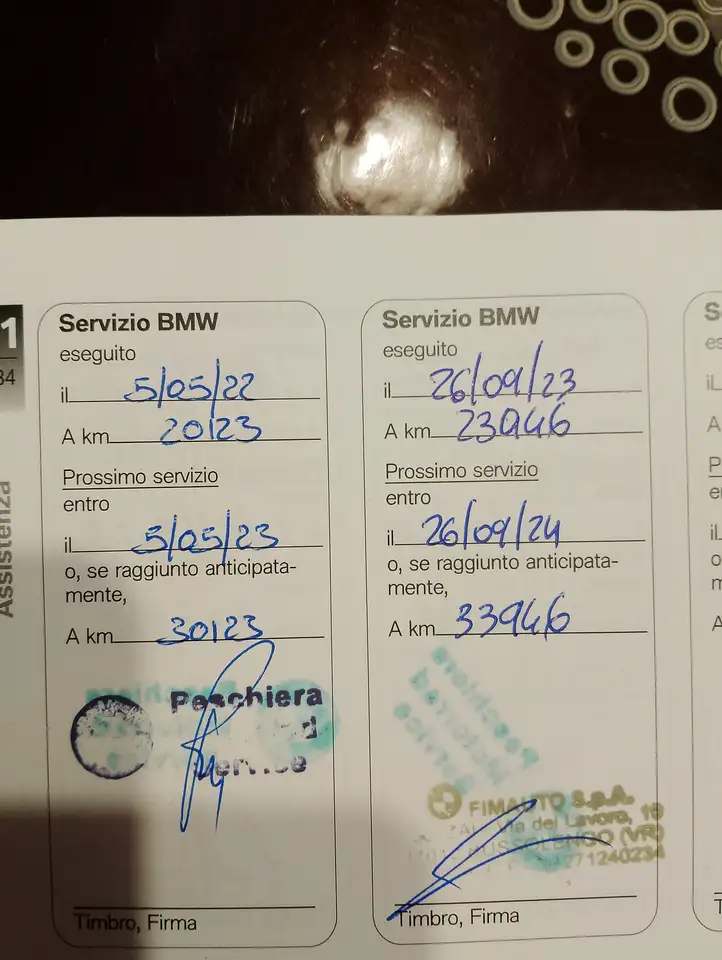 1
34
Assistenza
Servizio BMW
eseguito
il 5/05/22
A km 20123
Prossimo servizio
entro
il 5/05/23
o, se raggiunto anticipata-
mente,
A km 30123
Peschiera
Service
Timbro, Firma
Servizio BMW
eseguito
il 26/09/23
A km 23946
Prossimo servizio
entro
il 26/09/24
o, se raggiunto anticipata-
mente,
A km 33946
Peschiera
Motorrad
Service
FIMAUTO S.p.A.
Via del Lavoro, 10
BUSSOLENGO (VR)
271240234
Timbro, Firma